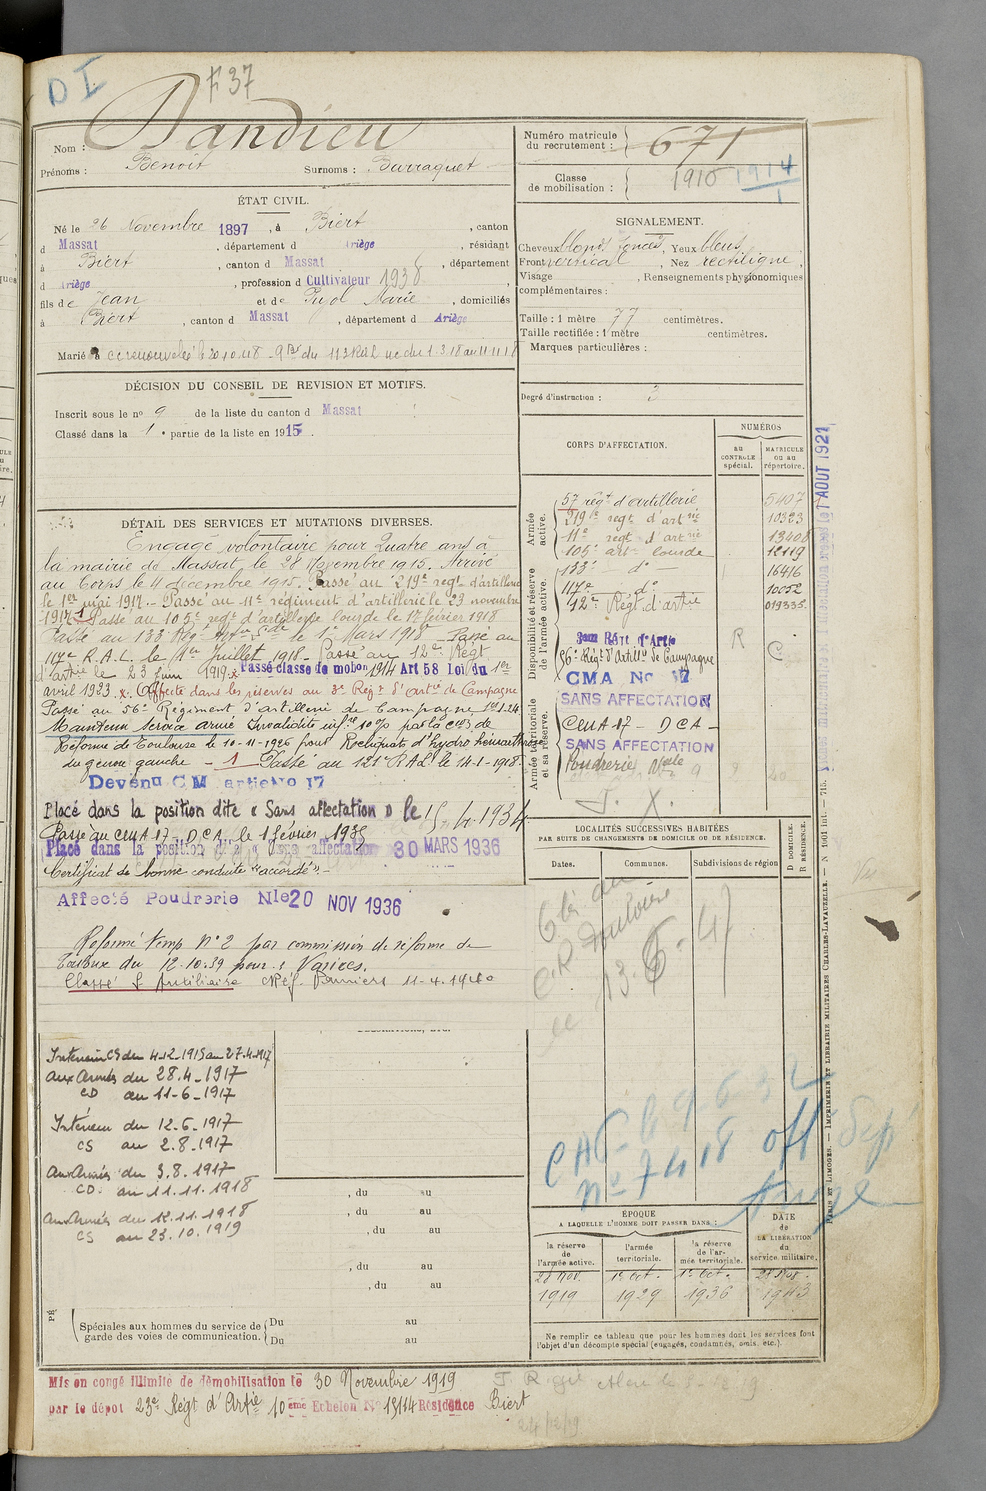 D I
F 37
Nom : Dandieu
Prénoms : Benoit Surnoms : Burraquet
Numéro matricule du recrutement : 671
Classe de mobilisation : 1915 1914
ÉTAT CIVIL.
Né le 26 Novembre 1897, à Biert, canton
d Massat, département d Ariège, résidant
à Biert, canton d Massat, département
d Ariège, profession d Cultivateur 1938
fils de Jean et de Pujol Marie, domiciliés
à Biert, canton d Massat, département d Ariège
Marié à
SIGNALEMENT.
Cheveux blonds foncés, Yeux bleus,
Front vertical, Nez rectiligne,
Visage , Renseignements physionomiques
complémentaires :
Taille : 1 mètre 77 centimètres.
Taille rectifiée : 1 mètre centimètres.
Marques particulières :
Degré d'instruction : 3
DÉCISION DU CONSEIL DE REVISION ET MOTIFS.
Inscrit sous le n° 9 de la liste du canton d Massat
Classé dans la 1e partie de la liste en 1915.
DÉTAIL DES SERVICES ET MUTATIONS DIVERSES.
Engagé volontaire pour Quatre ans à
la mairie de Massat, le 28 Novembre 1915. Arrivé
au Corps le 4 décembre 1915. Passé au 219e régt d'artillerie
le 1er mai 1917. - Passé au 11e régiment d'artillerie le 23 novembre
1917. Passé au 105e régt d'artillerie lourde le 17 février 1918
Passé au 133 Rég. Artie Lde le 1er Mars 1918 - Passé au
117e R.A.L. le 1er Juillet 1918 - Passé au 12e Régt
d'artie le 23 Juin 1919. x Passé classe de mobon 1914 Art 58 Loi du 1er
avril 1923. x. Affecté dans les réserves au 3e Rég. d'artie de Campagne
Passé au 56e Régiment d'artillerie de Campagne 1er.1.24
Maintenu service armé Invalidité infre 10% par la con de
Réforme de Toulouse le 10-11-1926 pour Reliquats d'hydro hémarthrose
du genou gauche - 1 Passé au 121e RAL le 14-1-1918.
Devenu C M artie No 17
Placé dans la position dite « Sans affectation » le 15.4.1934
Passé au CMA 17 - DCA, le 1 février 1935
Placé dans la position dite « Sans affectation » 30 MARS 1936
Certificat de bonne conduite "accordé" -
Affecté Poudrerie Nle 20 NOV 1936
Réformé temp N° 2 par commission de réforme de
du 12.10.39 pour : Varices.
Classé S Auxiliaire 11-4-1940
CORPS D'AFFECTATION.
NUMÉROS
au CONTROLE spécial.
MATRICULE ou au répertoire.
Armée active.
57 régt d'artillerie 5407
219e régt d'artrie 10323
11e régt d'artrie 13408
105e art. lourde 12119
Disponibilité et réserve de l'armée active.
133e do 16416
117e do 10052
12e Régt d'artie 019335
3eme Régt d'Artie
56e Rég. d'Artill. de Campagne R C
CMA No 17
SANS AFFECTATION
Armée territoriale et sa réserve.
CMA 17 - DCA -
SANS AFFECTATION
Poudrerie Nale
LOCALITÉS SUCCESSIVES HABITÉES
PAR SUITE DE CHANGEMENTS DE DOMICILE OU DE RÉSIDENCE.
Dates. Communes. Subdivisions de région
D DOMICILE. R RÉSIDENCE.
Intérieur CS du 4-12-1915 au 27.4.1917
aux Armées du 28.4-1917
CD au 11-6-1917
Intérieur du 12.6.1917
CS au 2.8.1917
Aux Armées du 3.8.1917
CD. au 11.11.1918
Aux Armées du 12.11.1918
CS au 23.10.1919
, du au
, du au
, du au
, du au
, du au
Spéciales aux hommes du service de garde des voies de communication.
Du au
Du au
n° 7418 off
ÉPOQUE
A LAQUELLE L'HOMME DOIT PASSER DANS :
la réserve de l'armée active.
l'armée territoriale.
la réserve de l'armée territoriale.
DATE de LA LIBÉRATION du service militaire.
28 Nov. 1919
1er Oct. 1929
1er Oct. 1936
28 Nov. 1943
Ne remplir ce tableau que pour les hommes dont les services font
l'objet d'un décompte spécial (engagés, condamnés, omis, etc.).
Mis en congé illimité de démobilisation le 30 Novembre 1919
par le dépôt 23e Régt d'Artie 10eme Echelon No 19114 Résidence Biert
PARIS ET LIMOGES. — IMPRIMERIE ET LIBRAIRIE MILITAIRES CHARLES-LAVAUZELLE. —
AOUT 1921